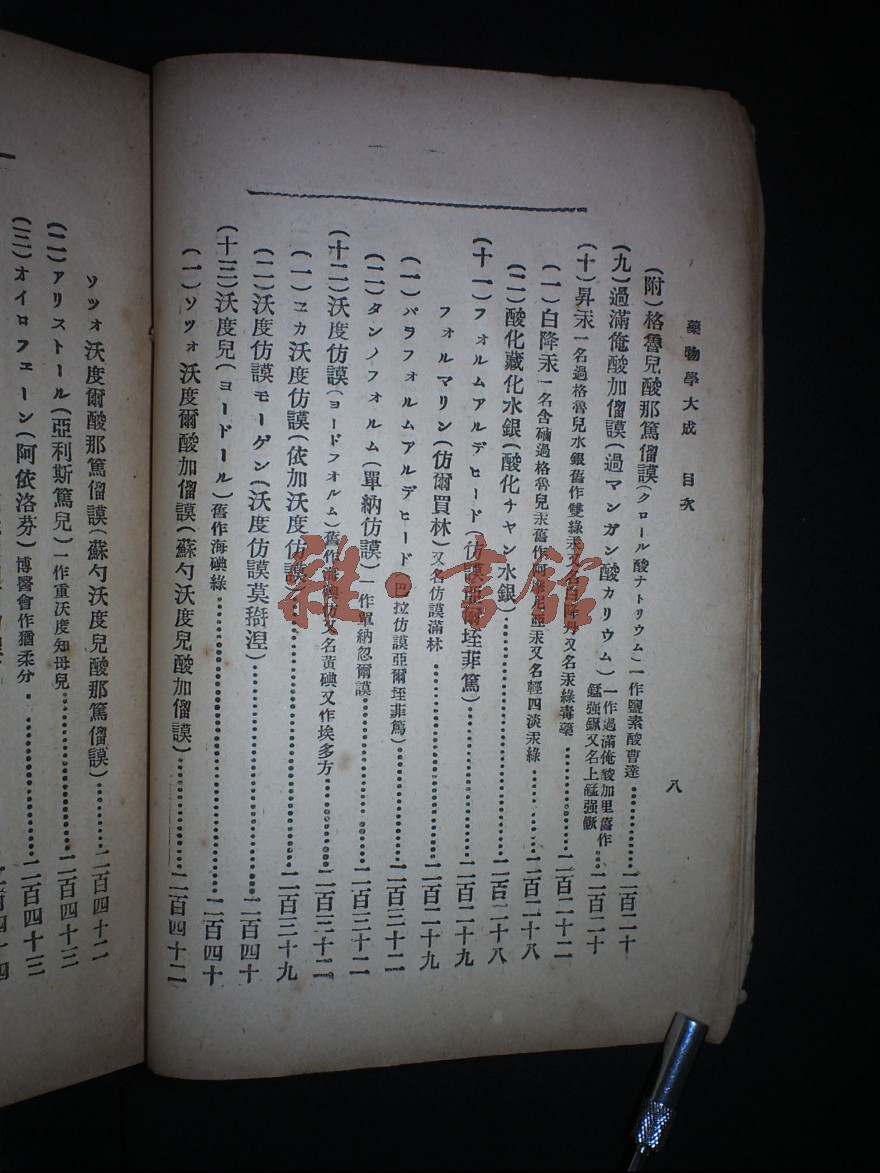 藥物學大成 目次 八
(附)格魯兒酸那篤僂謨(クロール酸ナトリウム)一作鹽素酸曹達 二百二十
(九)過滿俺酸加僂謨(過マンガン酸カリウム)一作過滿俺酸加里舊作錳強鹹又名上錳强 二百二十
(十)昇汞一名過格魯兒水銀舊作雙綠汞又名白降丹又名汞綠毒藥 二百二十二
(一)白降汞一名含磠過格魯兒汞舊作阿摩尼亞汞又名輕四淡汞綠 二百二十八
(二)酸化藏化水銀(酸化チャン水銀) 二百二十八
(十一)フォルムアルデヒード(仿謨亞爾垤菲篤) 二百二十九
フォルマリン(仿爾買林)又名仿謨滿林 二百二十九
(一)パラフォルムアルデヒード(巴拉仿謨亞爾垤菲篤) 二百三十二
(二)タンノフォルム(單納仿謨)一作單納忽爾謨 二百三十二
(十二)沃度仿謨(ヨードフォルム)舊作海碘仿又名黃碘又作埃多方 二百三十二
(一)ヱカ沃度仿謨(依加沃度仿謨) 二百三十九
(二)沃度仿謨モーゲン(沃度仿謨莫搿涅) 二百四十
(十三)沃度兒(ヨードール)舊作海碘綠 二百四十
(一)ソツォ沃度爾酸加僂謨(蘇勺沃度兒酸加僂謨) 二百四十二
ソツォ沃度爾酸那篤僂謨(蘇勺沃度兒酸那篤僂謨) 二百四十二
(二)アリストール(亞利斯篤兒)一作重沃度知母兒 二百四十三
(三)オイロフェーン(阿依洛芬)博醫會作猶柔分 二百四十三
雜·書館